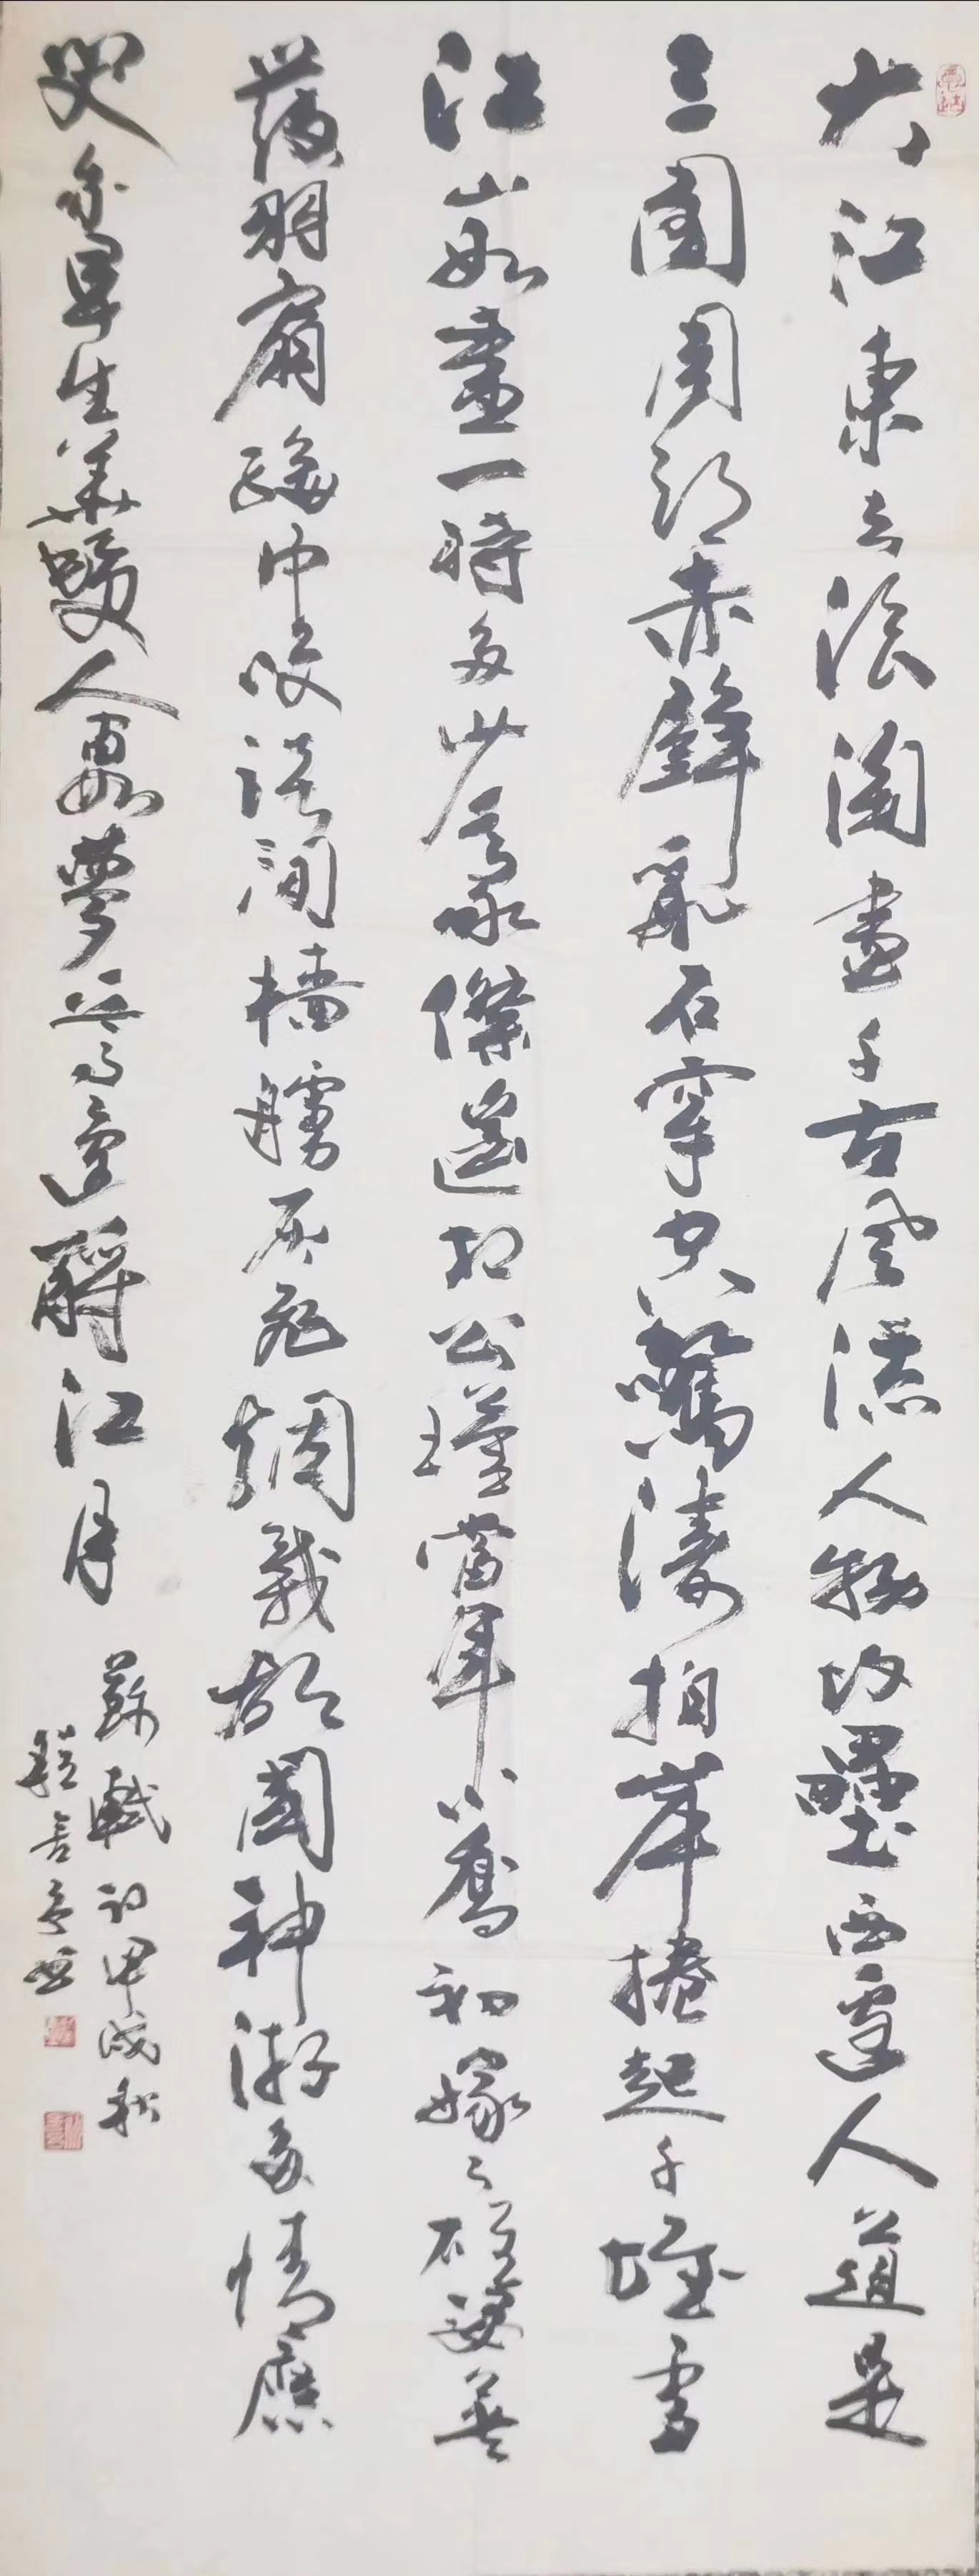 大江東去浪淘盡千古風流人物故壘西邊人道是
三國周郎赤壁亂石穿空驚濤拍岸捲起千堆雪
江山如畫一時多少豪傑遙想公瑾當年小喬初嫁了雄姿英
發羽扇綸巾咲談間檣艣灰飛煙滅故國神游多情應
咲我早生華髮人間如夢一尊還酹江月
蘇軾詞甲戌秋